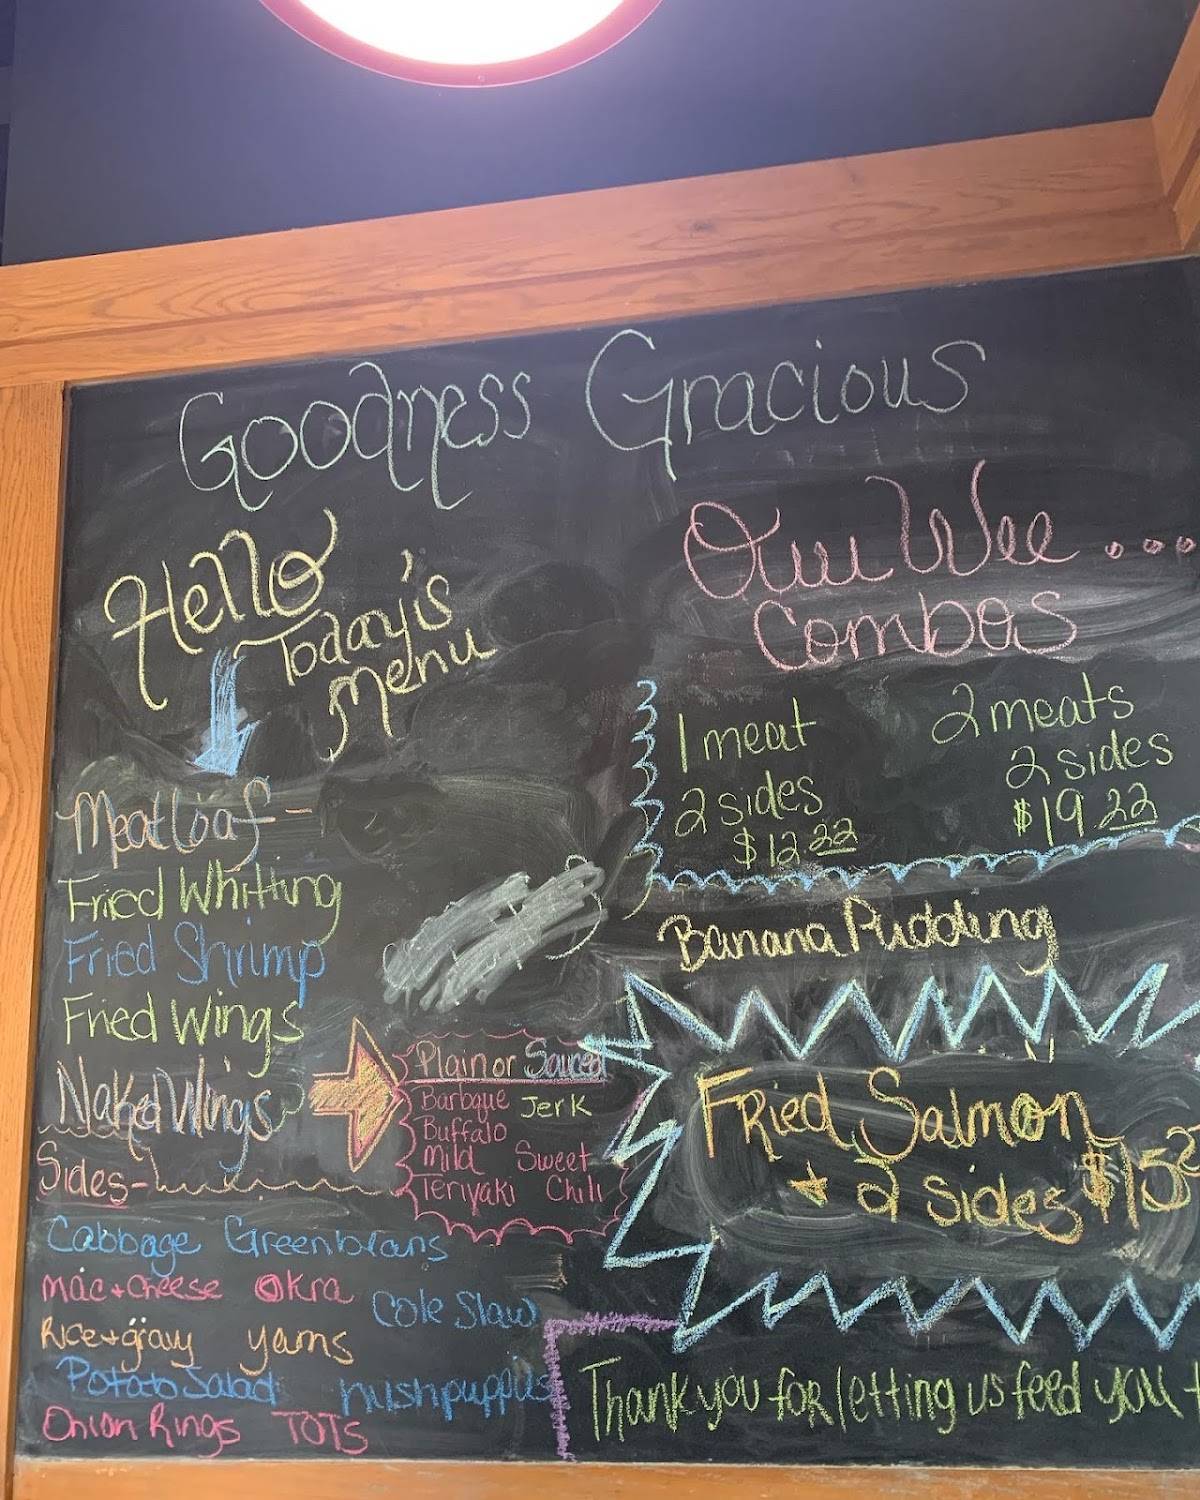 Goodness Gracious
Hello
Today's
Menu
Meatloaf -
Fried Whitting
Fried Shrimp
Fried Wings
Naked Wings
Plain or Sauced
Barbque Jerk
Buffalo
Mild Sweet
Teriyaki Chili
Sides-
Cabbage Greenbeans
Mac + Cheese Okra
Cole Slaw
Rice + gravy yams
Potato Salad hushpuppies
Onion Rings TOTS
Ouu Wee....
Combos
1 meat
2 sides
$12.22
2 meats
2 sides
$19.22
Banana Pudding
Fried Salmon
+ 2 sides $15
Thank you for letting us feed you